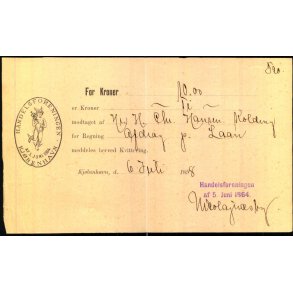 For Kroner 10.00
er Kroner Ti
modtaget af Hr H. Chr. Hansen Kolding
for Regning Afdrag p. Laan
meddeles herved Kvittering.
Kjøbenhavn, d. 6 Juli
HANDELSFORENINGEN
KJØBENHAVN
Handelsforeningen
af 5. Juni 1864.